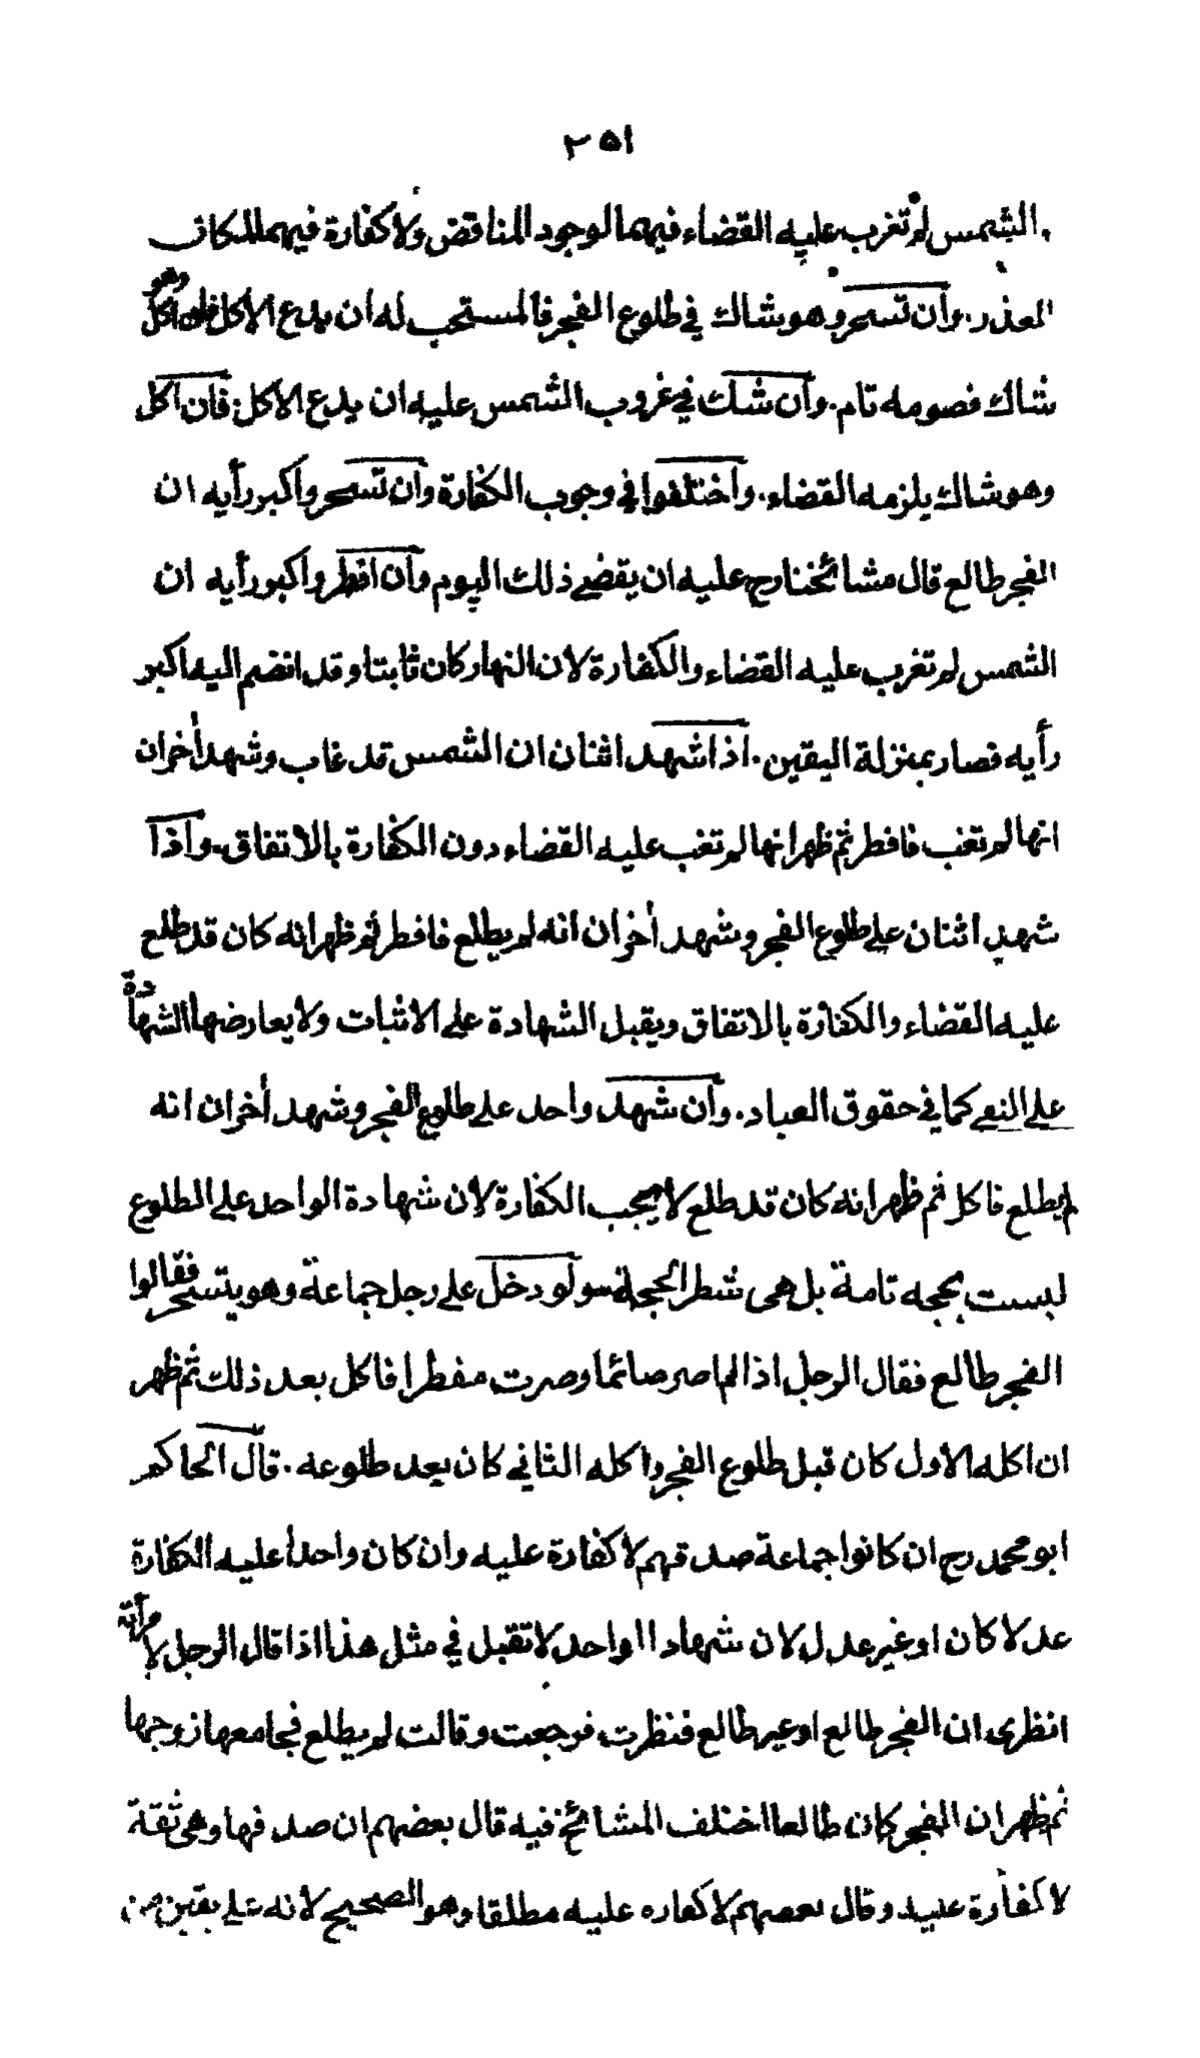 ٢٥١
الشمس لم تغرب عليه القضاء فيهما لوجود المناقض ولا كفارة فيهما لمكان
العذر. وان تسحر وهو شاك في طلوع الفجر فالمستحب له ان يدع الاكل فان اكل وهو
شاك فصومه تام. وان شك في غروب الشمس عليه ان يدع الاكل فان اكل
وهو شاك يلزمه القضاء. واختلفوا في وجوب الكفارة وان تسحر واكبر رأيه ان
الفجر طالع قال مشائخنا رح عليه ان يقضي ذلك اليوم وان افطر واكبر رأيه ان
الشمس لم تغرب عليه القضاء والكفارة لان النهار كان ثابتا وقد انضم اليه اكبر
رأيه فصار بمنزلة اليقين. اذا شهد اثنان ان الشمس قد غاب وشهد أخران
انها لم تغب فافطر ثم ظهر انها لم تغب عليه القضاء دون الكفارة بالاتفاق. واذا
شهد اثنان على طلوع الفجر وشهد أخران انه لم يطلع فافطر ثم ظهر انه كان قد طلع
عليه القضاء والكفارة بالاتفاق ويقبل الشهادة على الاثبات ولا يعارضها الشهادة
على النفي كما في حقوق العباد. وان شهد واحد على طلوع الفجر وشهد أخران انه
لم يطلع فاكل ثم ظهر انه كان قد طلع لا يجب الكفارة لان شهادة الواحد على الطلوع
ليست بحجه تامة بل هى شطر الحجة ولو دخل على رجل جماعة وهو يتسحر فقالوا
الفجر طالع فقال الرجل اذا لم اصر صائما وصرت مفطرا فاكل بعد ذلك ثم ظهر
ان اكله الاول كان قبل طلوع الفجر واكله الثاني كان بعد طلوعه. قال الحاكم
ابو محمد رح ان كانوا جماعة صدقهم لا كفارة عليه وان كان واحدا عليه الكفارة
عدلا كان او غير عدل لان شهادا الواحد لا تقبل في مثل هذا اذا قال الرجل لامرأته
انظرى ان الفجر طالع او غير طالع فنظرت فرجعت وقالت لم يطلع فجامعها زوجها
ثم ظهر ان الفجر كان طالعا اختلف المشائخ فيه قال بعضهم ان صدقها وهى ثقة
لا كفارة عليه وقال بعضهم لا كفاره عليه مطلقا وهو الصحيح لانه على يقين من